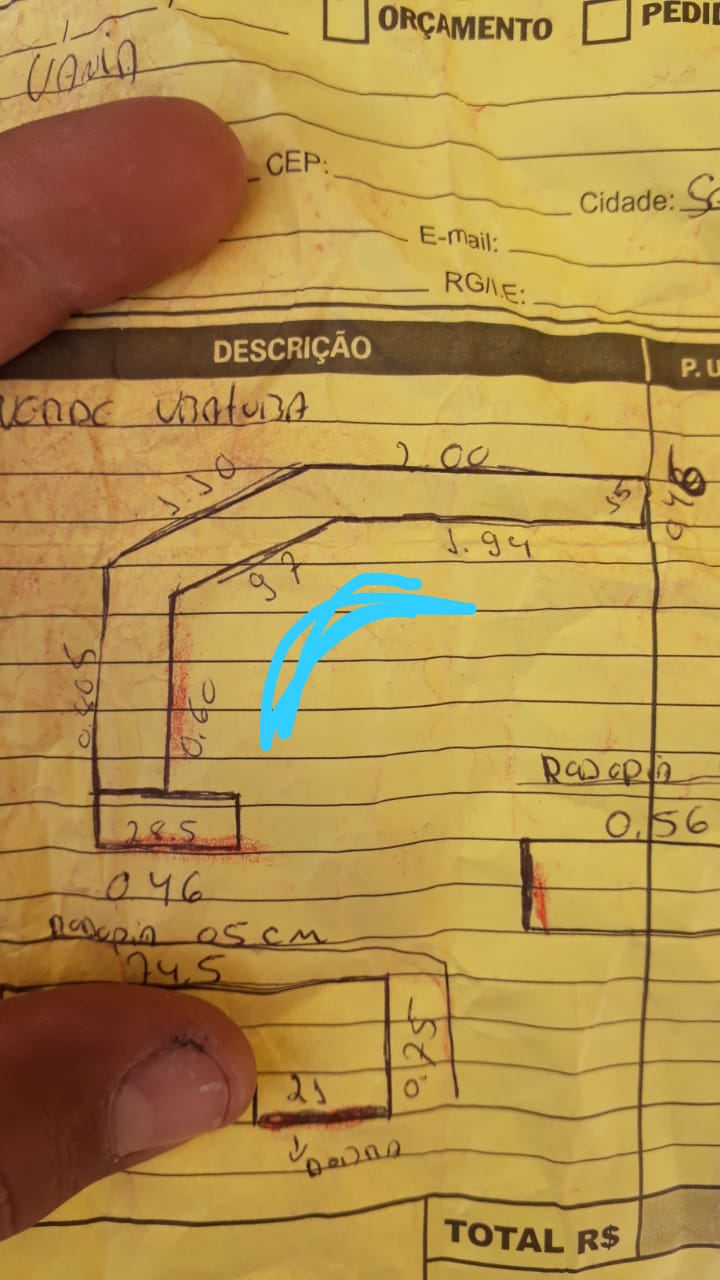 ORÇAMENTO PEDI
VANIA
CEP:
Cidade:
E-mail:
RG/I.E:
DESCRIÇÃO P. U
VERDE UBATUBA
1.10 2.00
15 046
97 1.94
0.805 0.60
28.5
046
RODAPIA
0.56
RODAPIA 05 CM
74.5
0.75
21
TOTAL R$